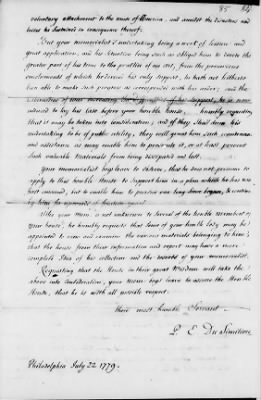 voluntary attachment to the cause of America, and amidst the disasters and
losses he sustained in consequence thereof;
But your memorialist's undertaking being a work of leisure and
great application, and his situation being such as obliged him to devote the
greater part of his time to the practice of his art, from the precarious
emoluments of which he derived his only support, he hath not hitherto
been able to make such progress as corresponds with his wishes; and the
duced to lay his case before your honble house, humbly requesting
that it may be taken into consideration; and if they shall deem his
undertaking to be of public utility, they will grant him such countenance
and assistance as may enable him to pursue it, or at least prevent
such valuable Materials from being dissipated and lost.
Your memorialist begs leave to declare, that he does not presume to
apply to this honble House to support him in a plan which he has now
first conceived, but to enable him to pursue one long since begun,
After your Mem is not unknown to several of the honble members of
your house; he humbly requests that some of your honble body may be
appointed to view and examine the various materials belonging to him;
that the house from their information and report may have a more
complete Idea of his collection and the wants of your memorialist.
Requesting that the House in their great Wisdom will take the
above into Consideration, your mem begs leave to assure the Honble
House, that he is with all possible respect
their most humble Servant
P. E. Du Simitiere
Philadelphia July 22. 1779.
85